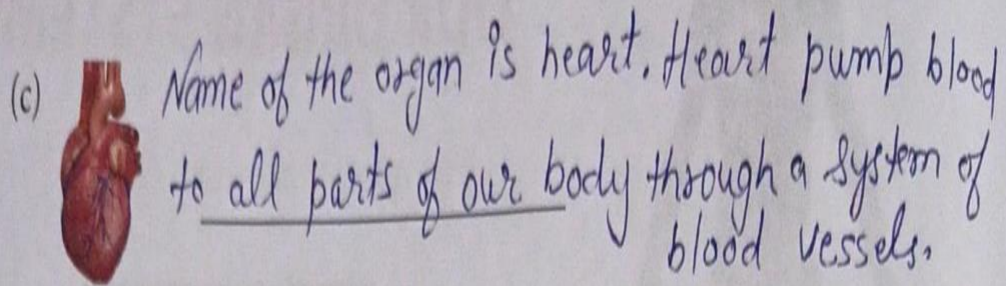 (c) Name of the organ is heart. Heart pump blood
to all parts of our body through a system of
blood vessels.